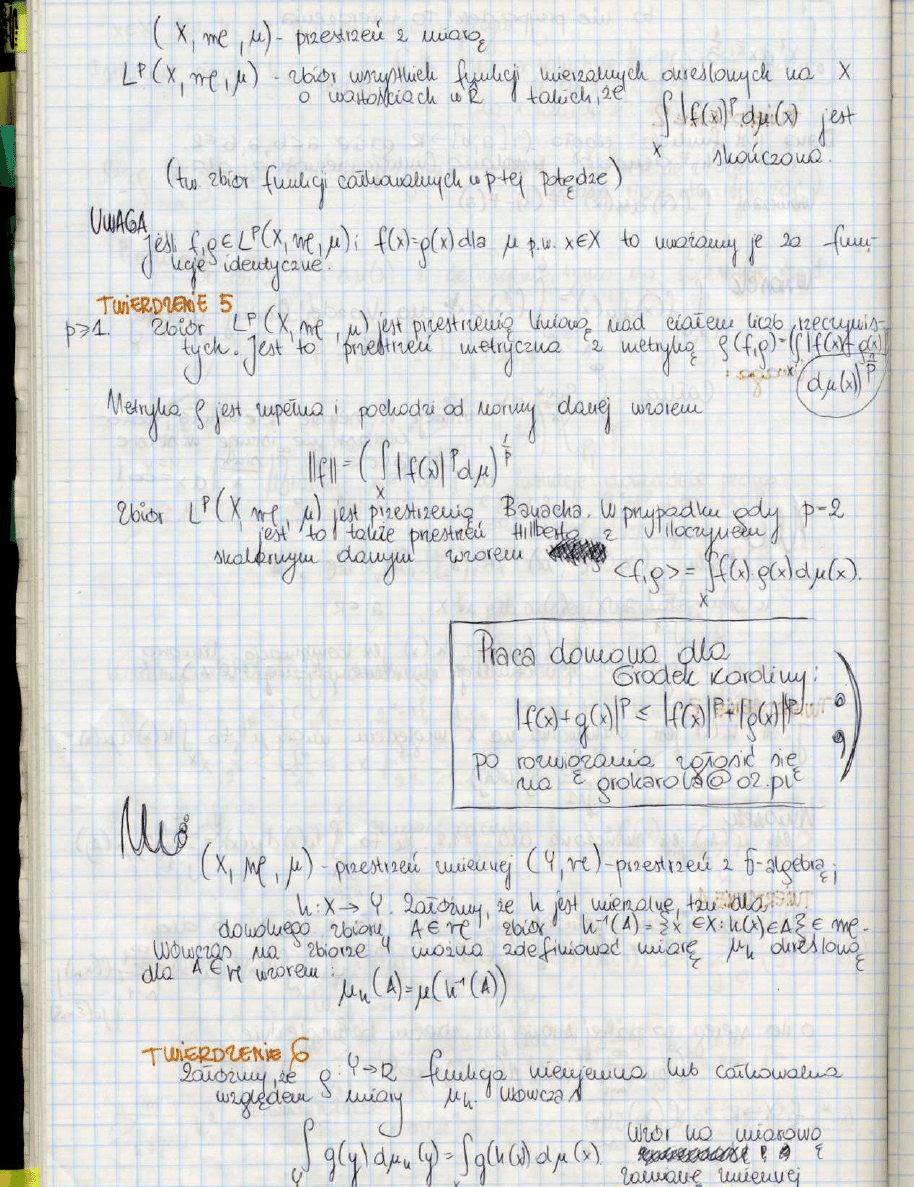 (X, 𝔪, μ) - przestrzeń z miarą
Lᵖ(X, 𝔪, μ) - zbiór wszystkich funkcji mierzalnych określonych na X
o wartościach w R takich, że ∫|f(x)|ᵖ dμ(x) jest
X skończona.
(tzw. zbiór funkcji całkowalnych w p-tej potędze)
UWAGA
Jeśli f, g ∈ Lᵖ(X, 𝔪, μ) i f(x)=g(x) dla μ p.w. x∈X to uważamy je za funk-
cje identyczne.
TWIERDZENIE 5
p≥1. Zbiór Lᵖ(X, 𝔪, μ) jest przestrzenią liniową nad ciałem liczb rzeczywis-
tych. Jest to przestrzeń metryczna z metryką ρ(f,g)=(∫|f(x)-g(x)|
dμ(x))^(1/p)
Metryka ρ jest zupełna i pochodzi od normy danej wzorem
||f|| = (∫|f(x)|ᵖ dμ)^(1/p)
X
Zbiór Lᵖ(X, 𝔪, μ) jest przestrzenią Banacha. W przypadku gdy p=2
jest to także przestrzeń Hilberta z iloczynem
skalarnym danym wzorem
<f,g> = ∫f(x)·g(x)dμ(x).
X
Praca domowa dla
Grodek Karoliny:
|f(x)+g(x)|ᵖ ≤ |f(x)|ᵖ+|g(x)|ᵖ
po rozwiązania zgłosić się
na grokarola@o2.pl
(X, 𝔪, μ) - przestrzeń (Y, 𝔫) - przestrzeń z σ-algebrą,
h: X → Y. Załóżmy, że h jest mierzalne, tzn dla
dowolnego zbioru A∈𝔫 zbiór h⁻¹(A) = {x∈X: h(x)∈A} ∈ 𝔪.
Wówczas na zbiorze Y można zdefiniować miarę μₕ określoną
dla A∈𝔫 wzorem:
μₕ(A)=μ(h⁻¹(A))
TWIERDZENIE 6
Załóżmy, że g: Y→R funkcja nieujemna lub całkowalna
względem miary μₕ. Wówczas
∫g(y)dμₕ(y) = ∫g(h(x))dμ(x). Wzór na miarową
Y X zamianę zmiennej